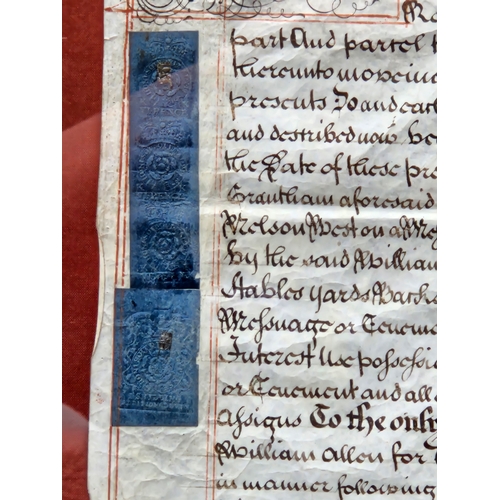 part And partel
thereunto moveing
presents To and each
and described now be
the Date of these pre
Grantham aforesaid
Nelson West on a Me
by the said William
Stables yards Backs
Messuage or Tenem
Interest Use possessi
or Tenement and all
assigns To the only
William Allen for
in manner following